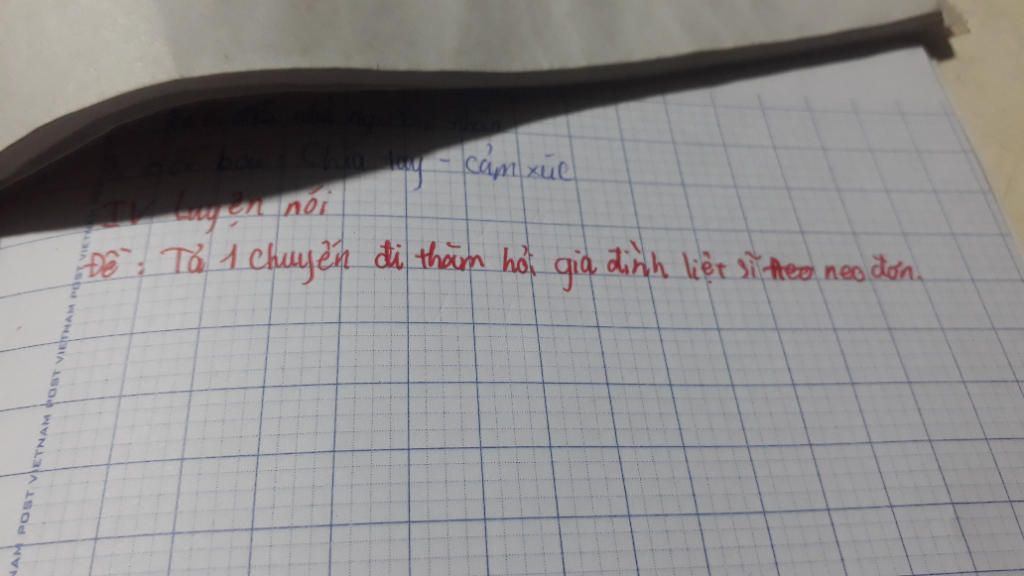 Chia tay - cảm xúc
IV Luyện nói
Đề: Tả 1 chuyến đi thăm hỏi gia đình liệt sĩ neo neo đơn.
VIETNAM POST VIETNAM POST VIETNAM POST VIETNAM